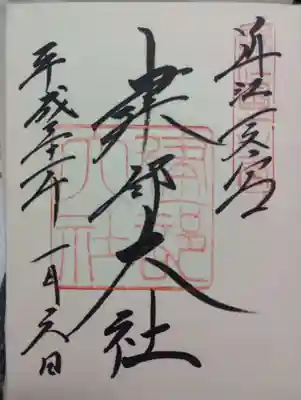 近江一之宮
建部大社
平成三十一年一月
建部大社